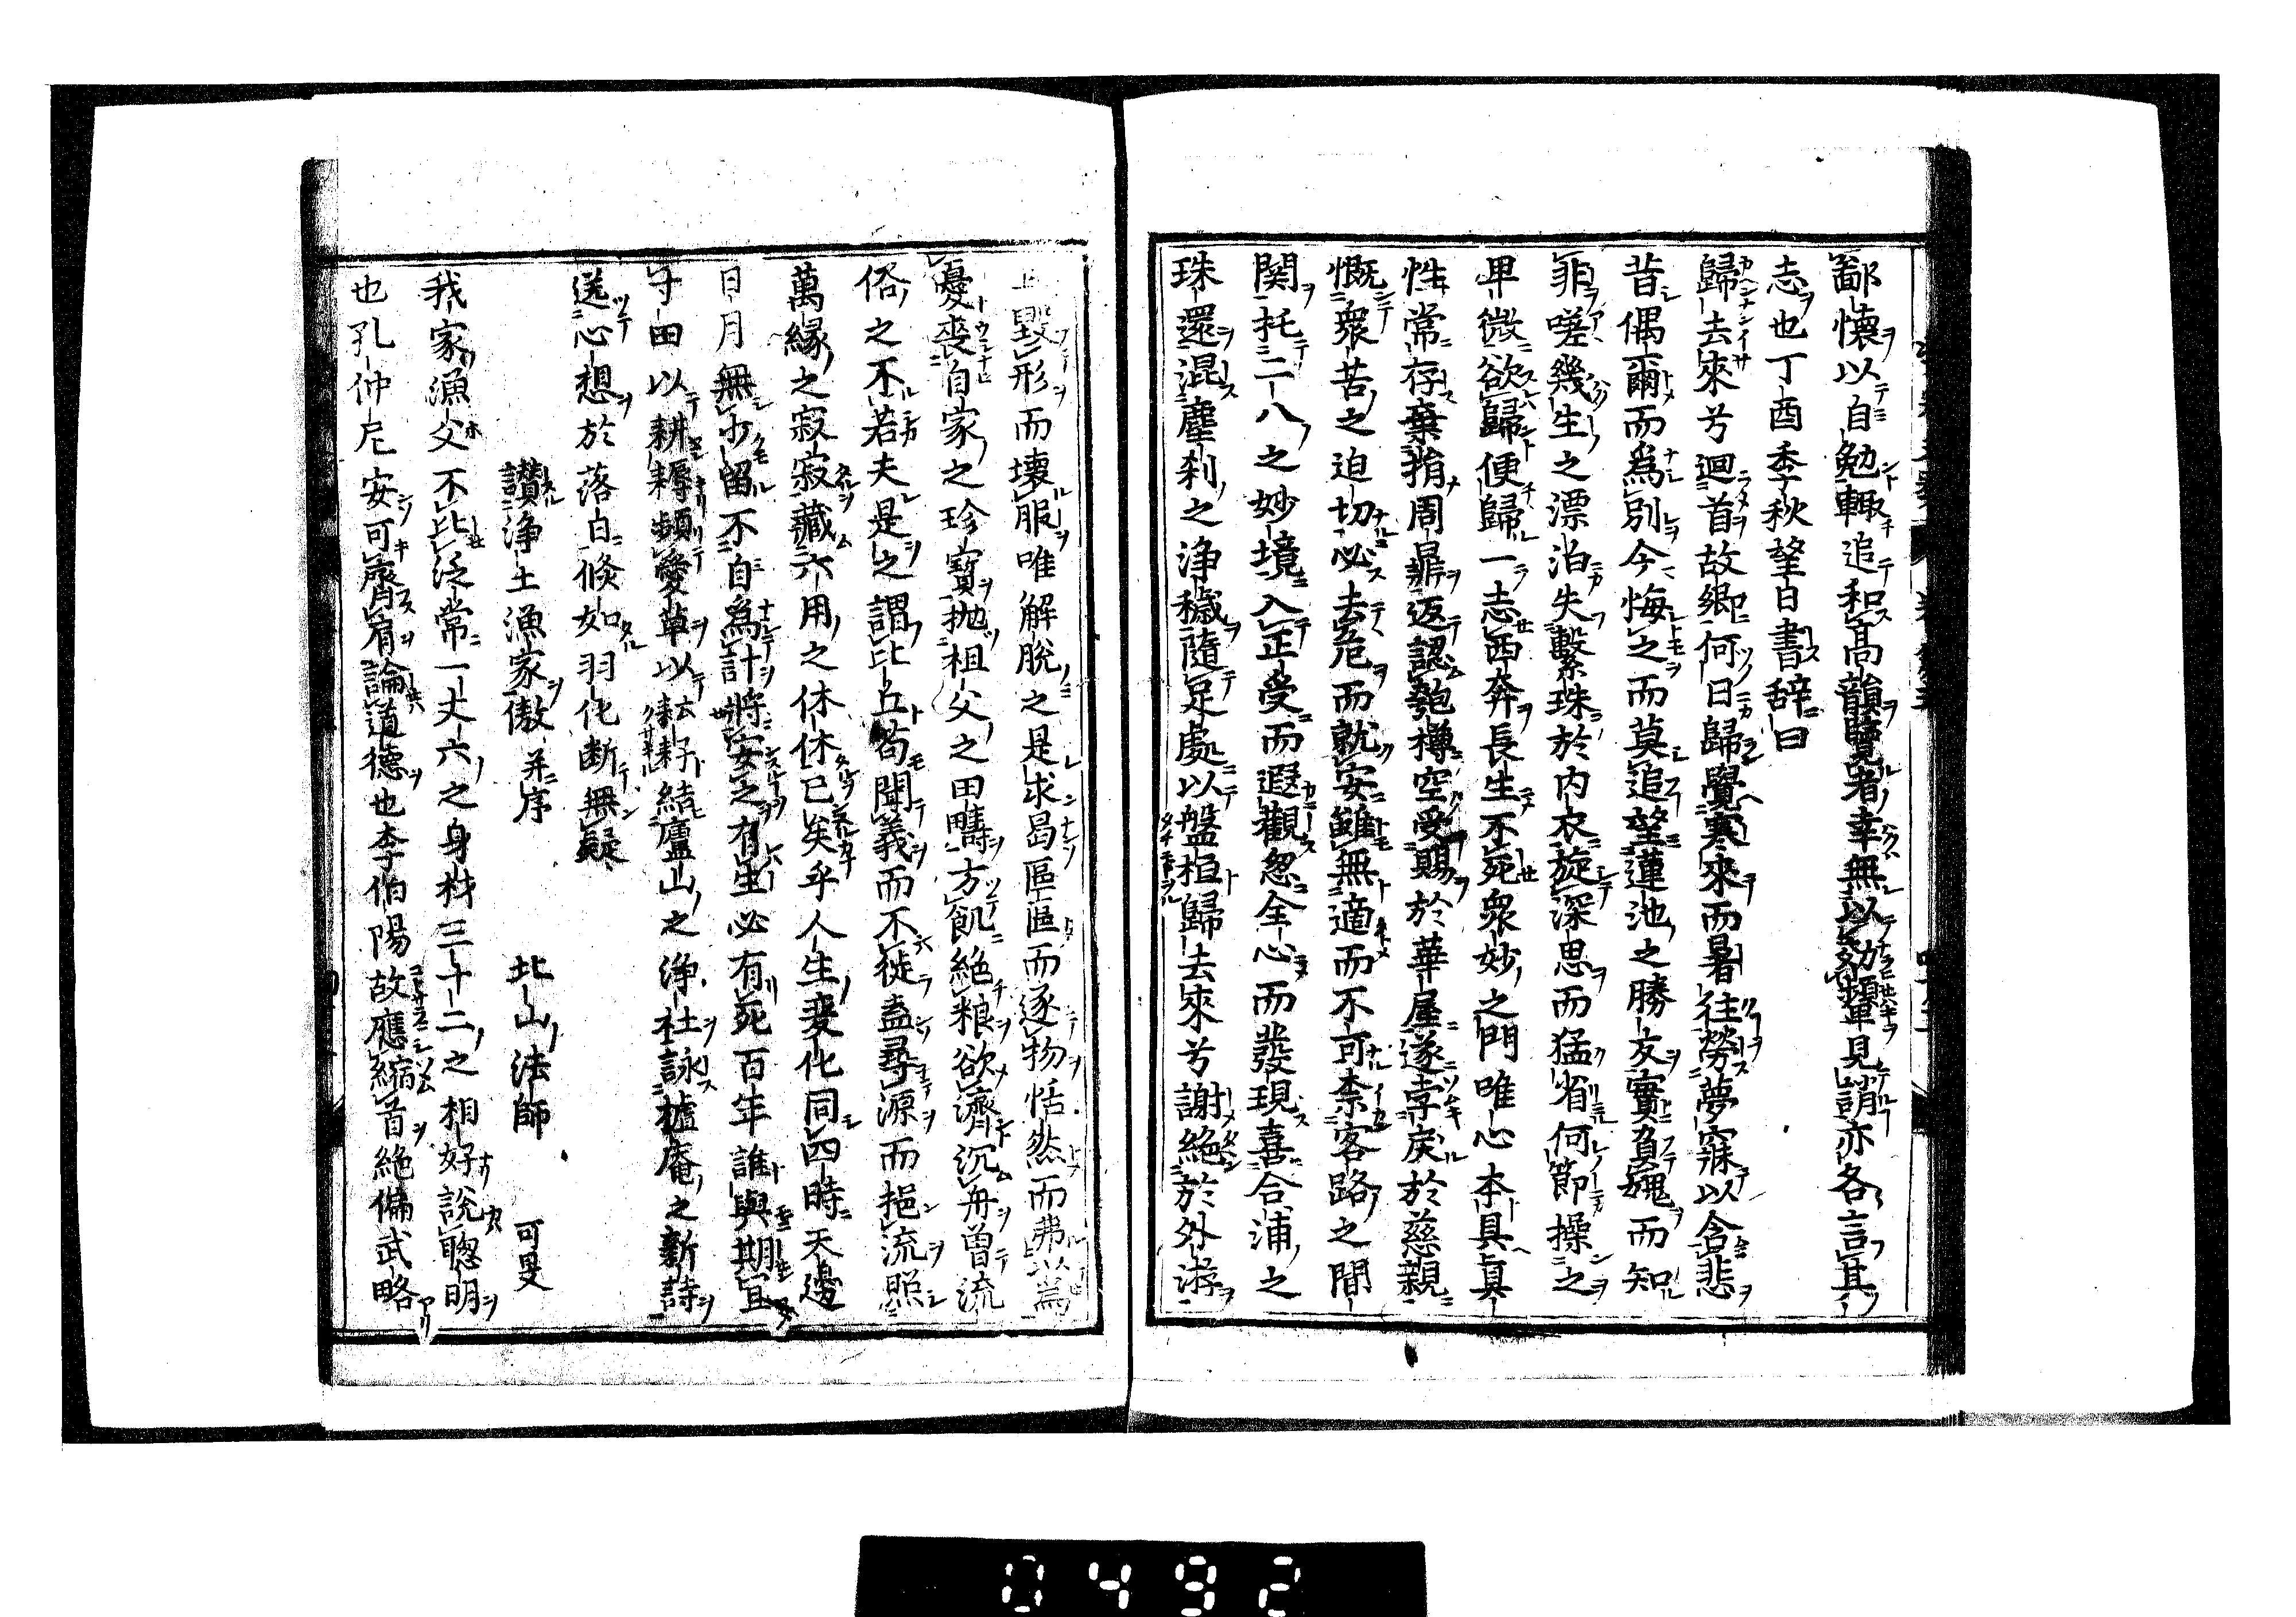 鄙懷以自勉輙追和髙韻覽者幸無以効顰見誚亦各言其
志也丁酉季秋望日書辞曰
歸去來兮迴首故郷何日歸覺寒來而暑往勞夢寐以含悲
昔偶爾而為別今悔之而莫追望蓮池之勝友實負媿而知
非嗟幾生之漂泊失繫珠於内衣旋深思而猛省何節操之
卑微欲歸便歸一志西奔長生不死衆妙之門唯心本具真
性常存棄捐周鼎返認匏樽空受賜於華屋遂孛戾於慈親
慨衆苦之迫切必去危而就安雖無適而不可柰客路之間
関托二八之妙境入正受而遐觀忽全心而發現喜合浦之
珠還混塵刹之浄穢隨足處以盤桓歸去來兮謝絶於外游
毀形而壊服唯解脱之是求曷區區而逐物恬然而弗以為
憂喪自家之珍寶抛祖父之田疇方飢絶粮欲濟沉舟曽流
俗之不若夫是之謂比丘苟聞義而不徙盍尋源而挹流照
萬縁之寂寂藏六用之休休已矣乎人生變化同四時天邊
日月無少留不自為計將安之有生必有死百年誰與期宜
寸田以耕耨頻薆草以耘耔結廬山之浄社詠櫨庵之新詩
送心想於落日倐如羽化断無疑
讃浄土漁家傲 并序 北山法師 可旻
我家漁父不比泛常一丈六之身材三十二之相好說聰明
也孔仲尼安可齊肩論道德也李伯陽故應縮首絶備武略
0492